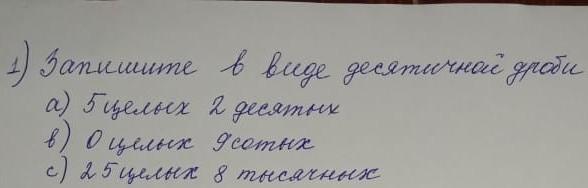 1) Запишите в виде десятичной дроби
а) 5 целых 2 десятых
в) 0 целых 9 сотых
с) 25 целых 8 тысячных